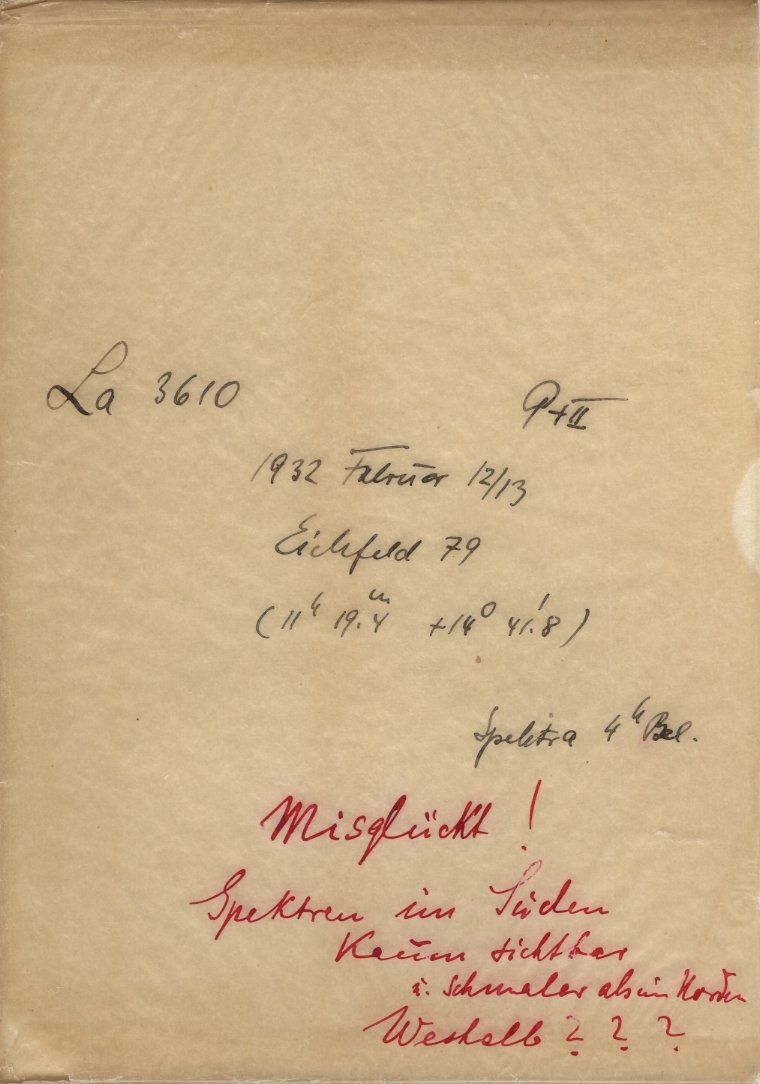 La 3610 P+II
1932 Februar 12/13
Eichfeld 79
(11ʰ 19.ᵐ4 +14⁰ 41.'8)
Spektra 4ʰ Bel.
Misglückt!
Spektren im Süden
Kaum sichtbar
u. schmaler als im Norden
Weshalb ? ? ?